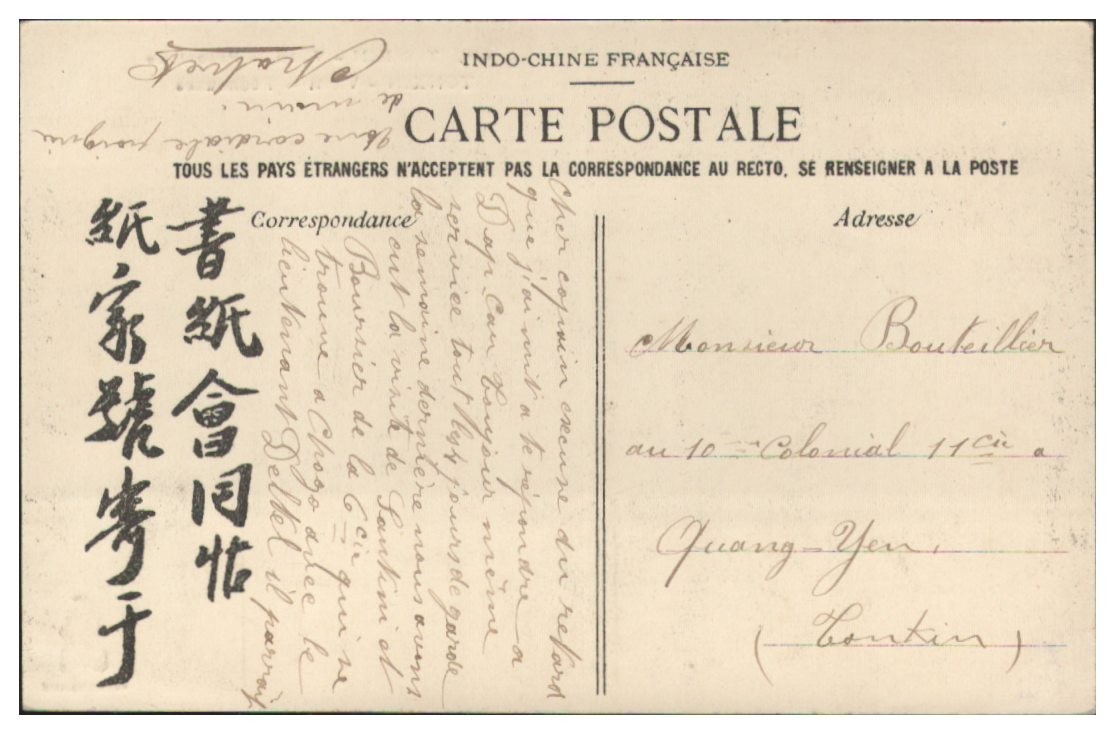 INDO-CHINE FRANÇAISE
CARTE POSTALE
TOUS LES PAYS ÉTRANGERS N'ACCEPTENT PAS LA CORRESPONDANCE AU RECTO, SE RENSEIGNER A LA POSTE
Correspondance
Adresse
書紙會同帖
紙家號寄于
Cher copain excuse du retard
que j'ai mit a te répondre a
Dap-Cau toujour même
service tout les 4 jours de garde
la semaine dernière nous avons
eut la visite de Santini et
Boursier de la 6 cie qui se
trouve a Chogo avec le
lieutenant Deltel il parrait
Une cordiale poignée
de main.
Monsieur Bouteillier
au 10me Colonial 11 cie a
Quang-Yen,
(Tonkin)